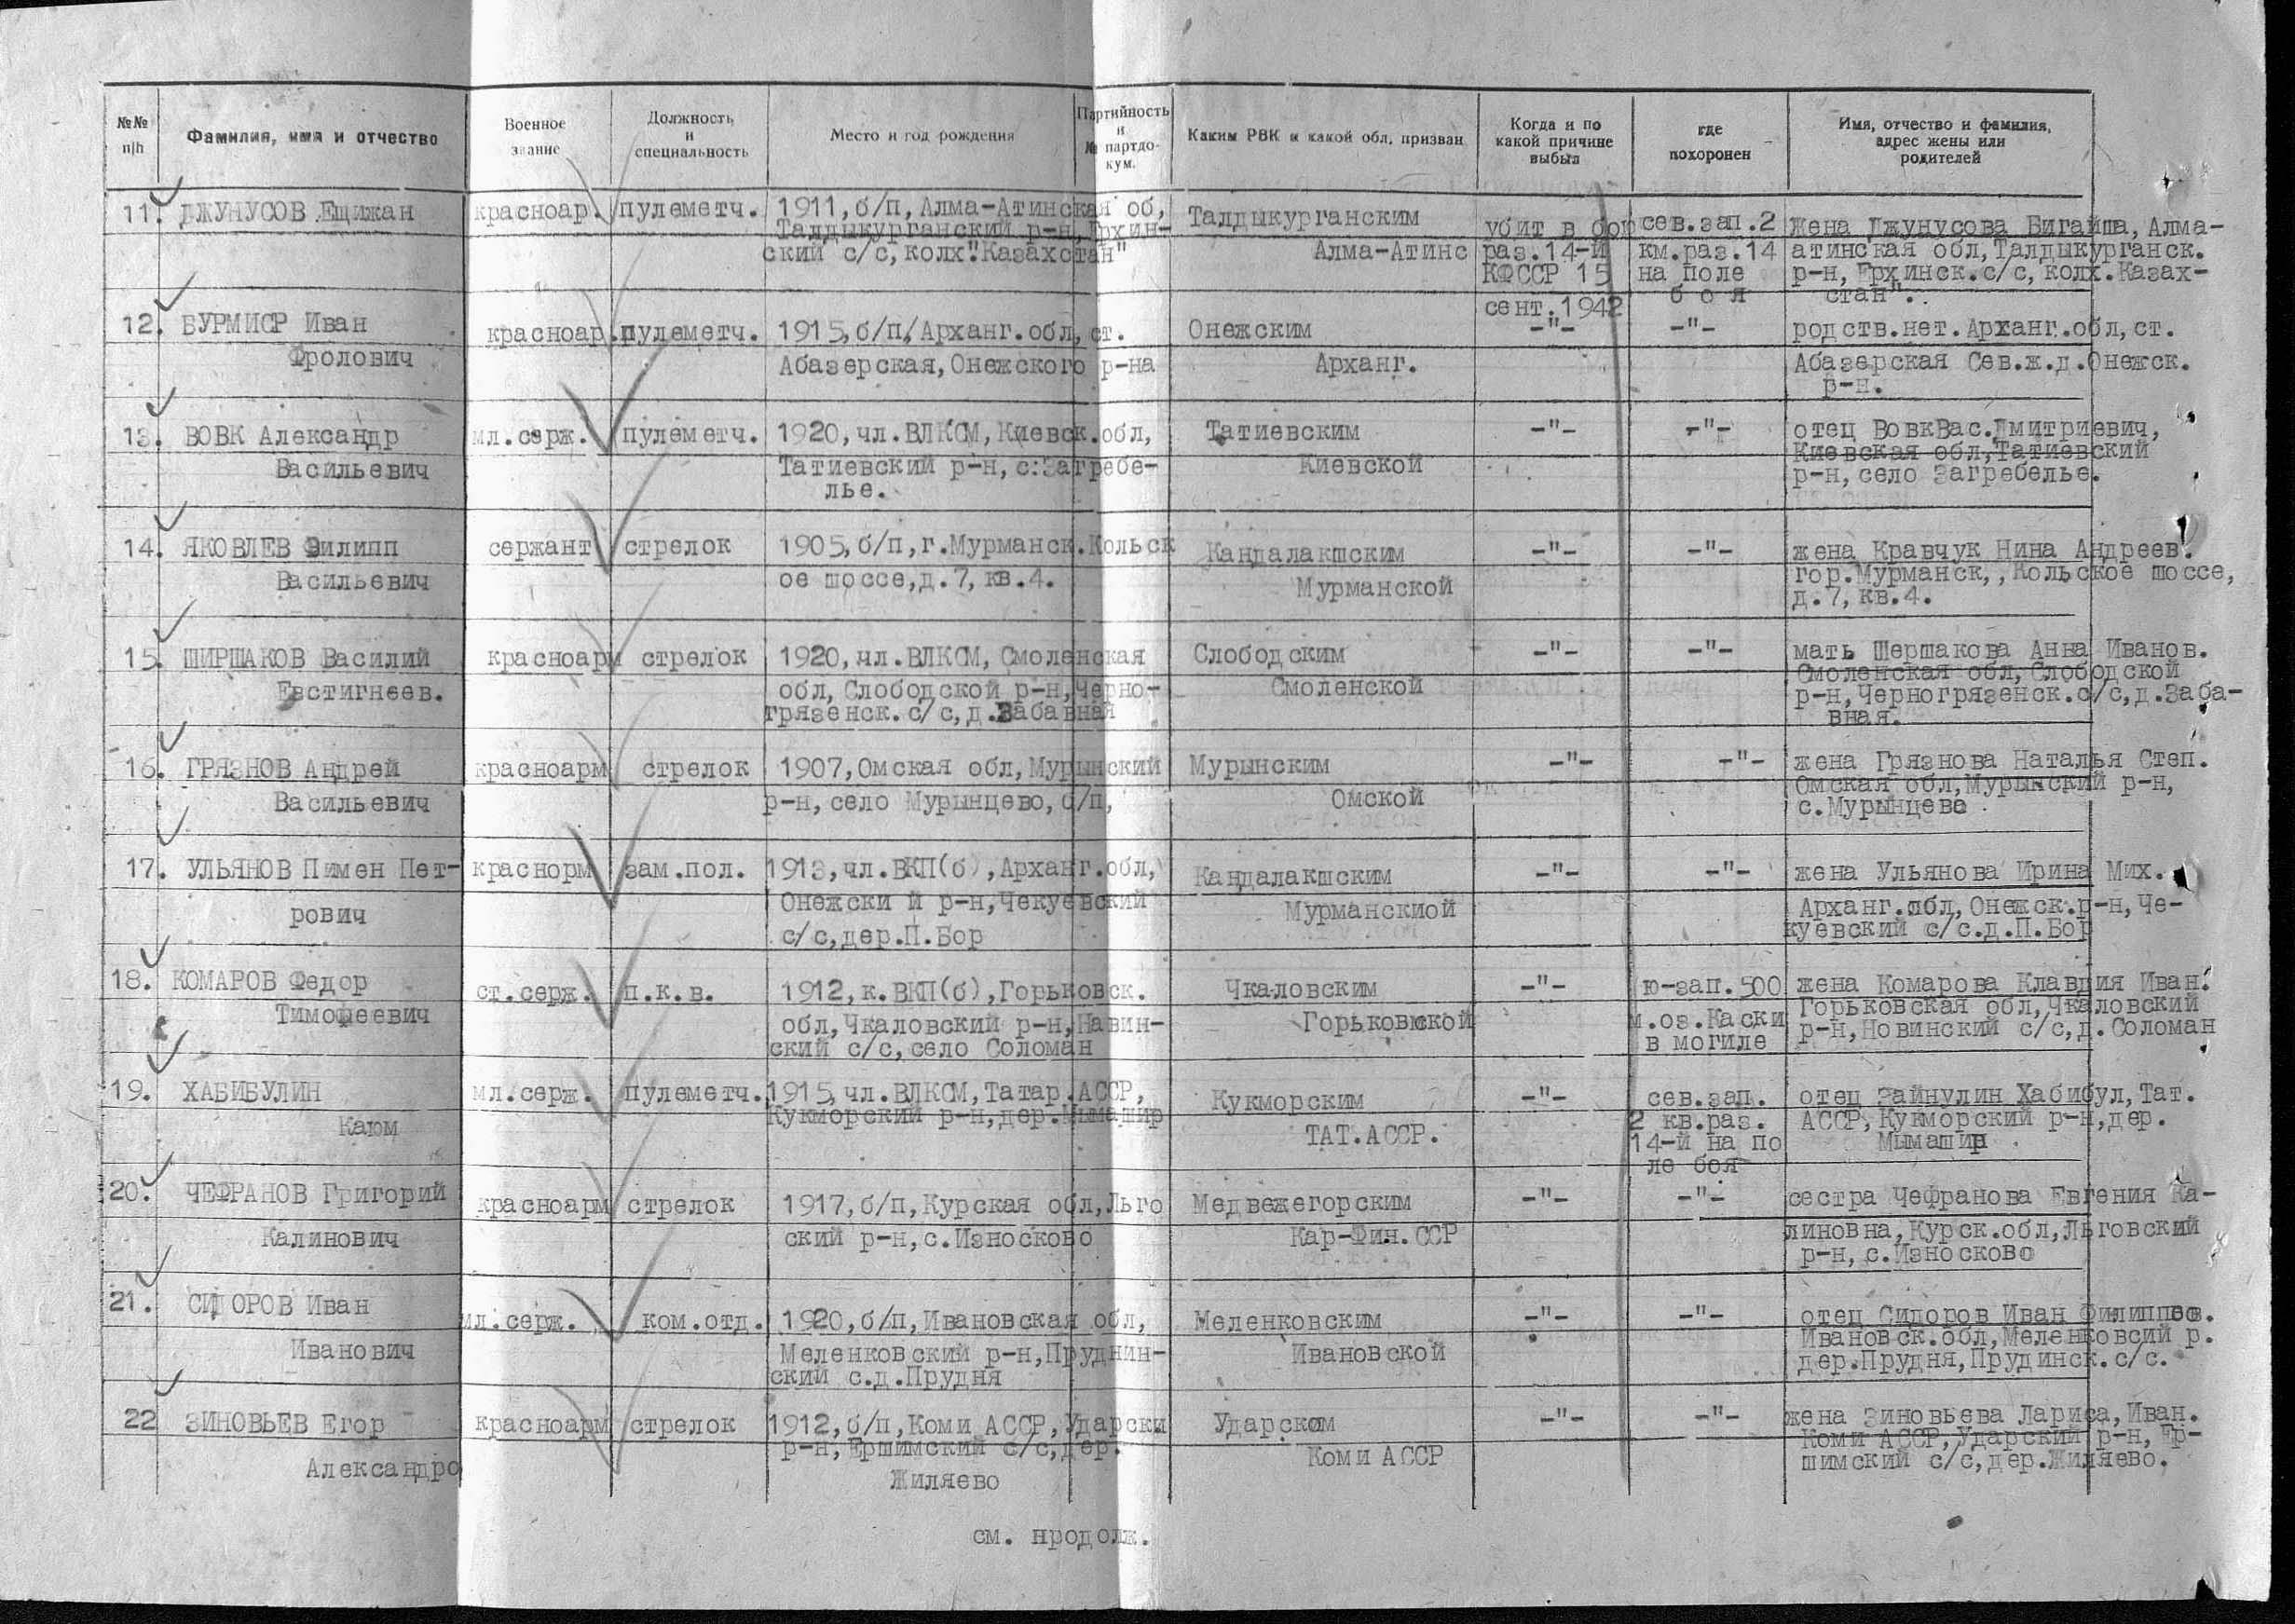 №№ п/п
Фамилия, имя и отчество
Военное звание
Должность и специальность
Место и год рождения
Партийность и № партдокум.
Каким РВК и какой обл. призван
Когда и по какой причине выбыл
где похоронен
Имя, отчество и фамилия, адрес жены или родителей
11. ДЖУНУСОВ Ещижан красноар. пулеметч. 1911,б/п,Алма-Атинская об, Талдыкурганским убит в бою сев.зап.2 жена Джунусова Бигайша, Алма-
Талдыкурганский р-н,Ерхин- Алма-Атинс раз.14-й км.раз.14 атинская обл,Талдыкурганск.
ский с/с,колх."Казахстан" КФССР 15 на поле р-н,Ерхинск.с/с,колх.Казах-
сент.1942 б о я стан".
12. БУРМИСР Иван красноар. пулеметч. 1915,б/п,Арханг.обл,ст. Онежским -"- -"- родств.нет.Арханг.обл,ст.
Фролович Абазерская,Онежского р-на Арханг. Абазерская Сев.ж.д.Онежск.
р-н.
13. ВОВК Александр мл.серж. пулеметч. 1920,чл.ВЛКСМ,Киевск.обл, Татиевским -"- -"- отец ВовкВас.Дмитриевич,
Васильевич Татиевский р-н,с.Загребе- Киевской Киевская обл,Татиевский
лье. р-н,село Загребелье.
14. ЯКОВЛЕВ Филипп сержант стрелок 1905,б/п,г.Мурманск.Кольск Кандалакшским -"- -"- жена Кравчук Нина Андреев.
Васильевич ое шоссе,д.7,кв.4. Мурманской гор.Мурманск,,Кольское шоссе,
д.7,кв.4.
15. ШИРШАКОВ Василий красноарм стрелок 1920,чл.ВЛКСМ,Смоленская Слободским -"- -"- мать Шершакова Анна Иванов.
Евстигнеев. обл,Слободской р-н,Черно- Смоленской Смоленская обл,Слободской
грязенск.с/с,д.Забавная р-н,Черногрязенск.с/с,д.Заба-
вная.
16. ГРЯЗНОВ Андрей красноарм стрелок 1907,Омская обл,Мурынский Мурынским -"- -"- жена Грязнова Наталья Степ.
Васильевич р-н,село Мурынцево,б/п, Омской Омская обл,Мурынский р-н,
с.Мурынцево
17. УЛЬЯНОВ Пимен Пет- краснорм зам.пол. 1913,чл.ВКП(б),Арханг.обл, Кандалакшским -"- -"- жена Ульянова Ирина Мих.
рович Онежски й р-н,Чекуевский Мурманскиой Арханг.обл,Онежск.р-н,Че-
с/с,дер.П.Бор куевский с/с.д.П.Бор
18. КОМАРОВ Федор ст.серж. п.к.в. 1912,к.ВКП(б),Горьковск. Чкаловским -"- ю-зап.500 жена Комарова Клавдия Иван.
Тимофеевич обл,Чкаловский р-н,Навин- Горьковской м.оз.Каски Горьковская обл,Чкаловский
ский с/с,село Соломан в могиле р-н,Новинский с/с,д.Соломан
19. ХАБИБУЛИН мл.серж. пулеметч. 1915,чл.ВЛКСМ,Татар.АССР, Кукморским -"- сев.зап. отец Зайнулин Хабибул,Тат.
Каюм Кукморский р-н,дер.Мымашир ТАТ.АССР. 2 кв.раз. АССР,Кукморский р-н,дер.
14-й на по Мымашир
ле боя
20. ЧЕФРАНОВ Григорий красноарм стрелок 1917,б/п,Курская обл,Льго Медвежегорским -"- -"- сестра Чефранова Евгения Ка-
Калинович ский р-н,с.Износково Кар-Фин.ССР линовна,Курск.обл,Льговский
р-н,с.Износково
21. СИДОРОВ Иван мл.серж. ком.отд. 1920,б/п,Ивановская обл, Меленковским -"- -"- отец Сидоров Иван Филиппов.
Иванович Меленковский р-н,Пруднин- Ивановской Ивановск.обл,Меленковсий р.
ский с.д.Прудня дер.Прудня,Прудинск.с/с.
22 ЗИНОВЬЕВ Егор красноарм стрелок 1912,б/п,Коми АССР,Ударски Ударском -"- -"- жена Зиновьева Лариса,Иван.
Александро р-н,Ершимский с/с,дер. Коми АССР Коми АССР,Ударский р-н,Ер-
Жиляево шимский с/с,дер.Жиляево.
см. нродолж.